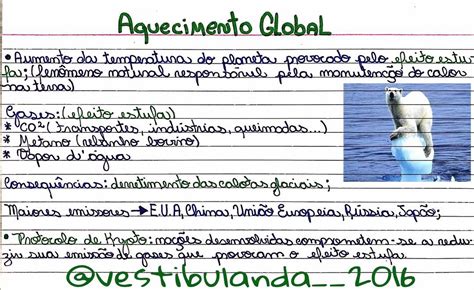 Aquecimento Global
• Aumento da temperatura do planeta provocado pelo efeito estu-
fa; (fenômeno natural responsável pela manutenção do calor
na terra)
Gases: (efeito estufa)
* CO² (transportes, indústrias, queimadas...)
* Metano (rebanho bovino)
* Vapor d'água
Consequências: derretimento das calotas glaciais;
Maiores emissores → E.U.A, China, União Europeia, Rússia, Japão;
• Protocolo de Kyoto: nações desenvolvidas comprometem-se a redu-
ziu sua emissão de gases que provocam o efeito estufa.
@vestibulanda__2016